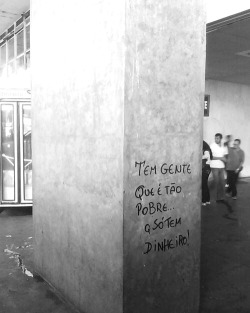 TEM GENTE
QUE É TÃO
POBRE...
Q SÓ TEM
DINHEIRO!